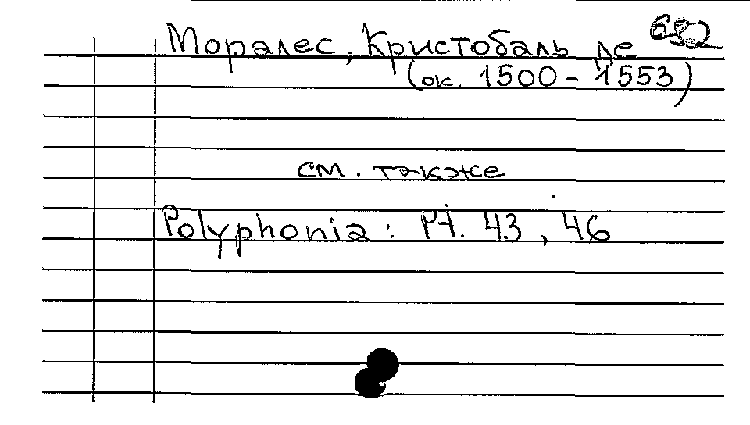 Моралес, Кристобаль де
(ок. 1500 - 1553)
см. также
Polyphonia: Pt. 43, 46